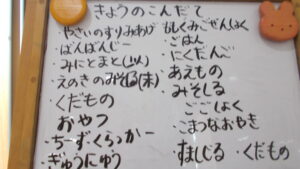 きょうのこんだて
・やさいのすりみあげ
・ばんばんじー
・みにとまと(以上)
・えのきのみそしる(末)
・くだもの
おやつ
・ちーず・くらっかー
・ぎゅうにゅう
・ごはん
・にくだんご
・あえもの
・みそしる
ごごしょく
・こまつなおやき
すましじる・くだもの